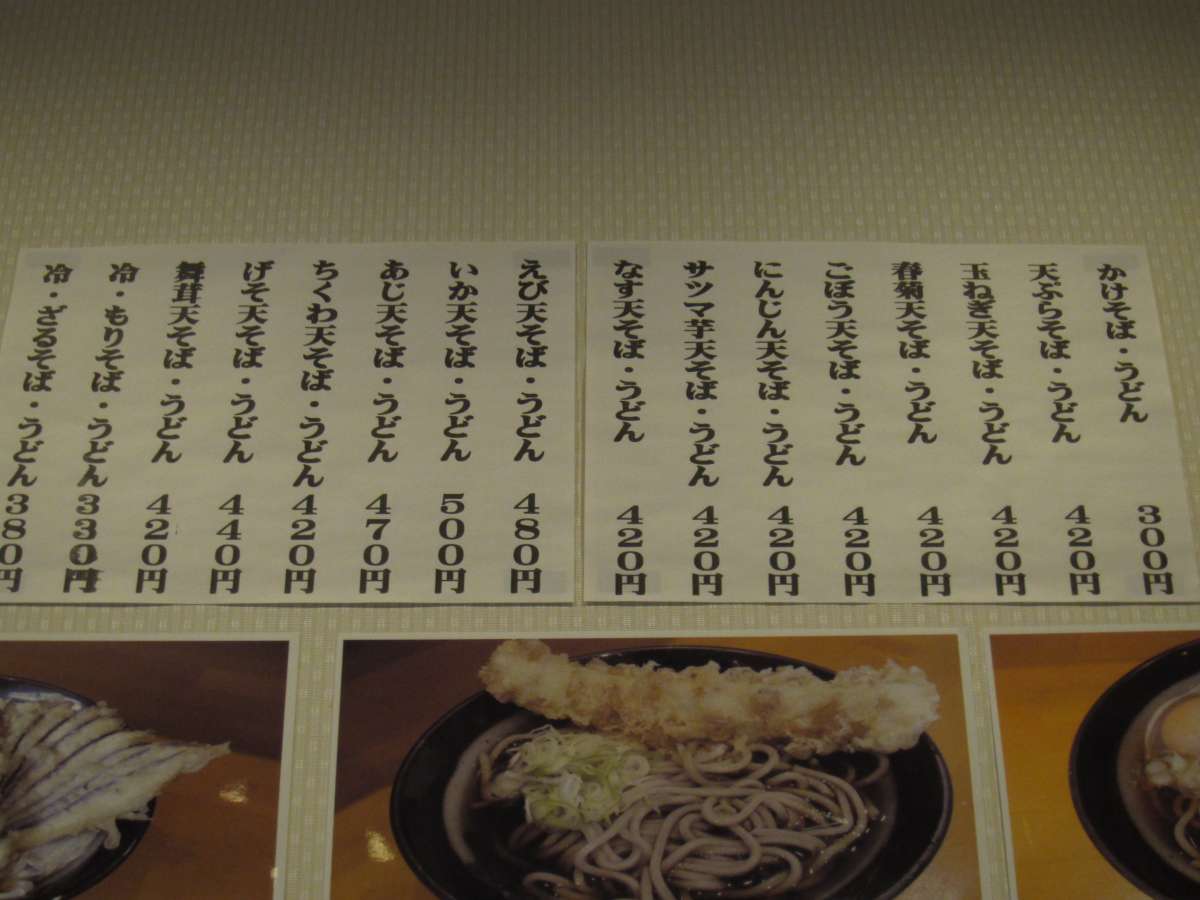 かけそば・うどん 300円
天ぷらそば・うどん 420円
玉ねぎ天そば・うどん 420円
春菊天そば・うどん 420円
ごぼう天そば・うどん 420円
にんじん天そば・うどん 420円
サツマ芋天そば・うどん 420円
なす天そば・うどん 420円
えび天そば・うどん 480円
いか天そば・うどん 500円
あじ天そば・うどん 470円
ちくわ天そば・うどん 420円
げそ天そば・うどん 440円
舞茸天そば・うどん 420円
冷・もりそば・うどん 330円
冷・ざるそば・うどん 380円